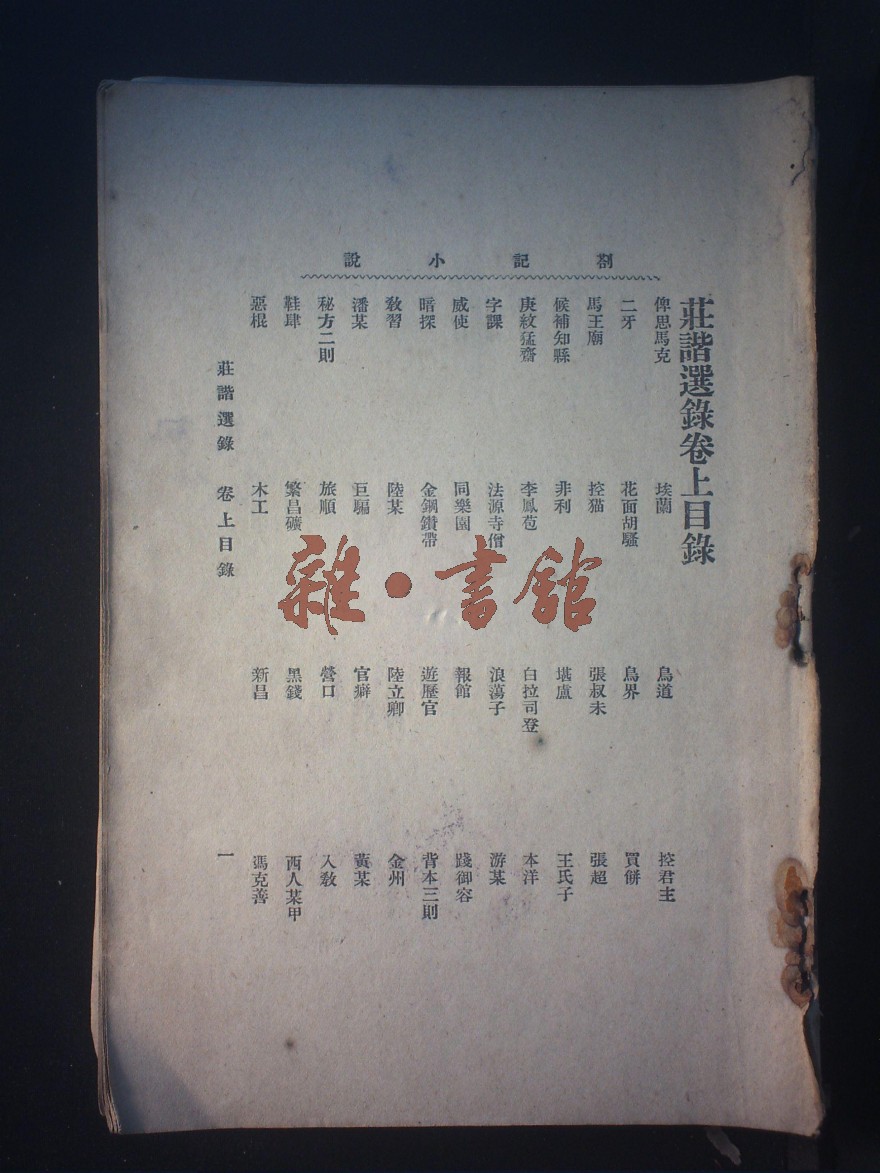 劄記小說
莊諧選錄卷上目錄
俾思馬克 埃蘭 鳥道 控君主
二牙 花面胡騷 鳥界 買餅
馬王廟 控猫 張叔未 張超
候補知縣 非利 堪盧 王氏子
庚紋猛齋 李鳳苞 白拉司登 本洋
字課 法源寺僧 浪蕩子 游某
威使 同樂園 報館 踐御容
暗探 金鋼鑽帶 遊歷官 背本三則
教習 陸某 陸立卿 金州
潘某 巨騙 官癖 黃某
秘方二則 旅順 營口 入教
鞋肆 繁昌礦 黑錢 西人某甲
惡棍 木工 新昌 馮克善
莊諧選錄 卷上目錄 一
雜·書館